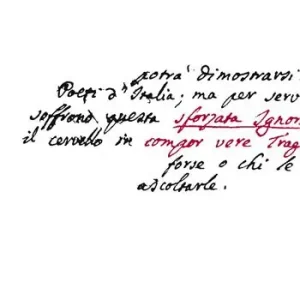 potrà dimostrarsi
Poeti d'Italia; ma per serv
soffrono questa sforzata Ignor
il cervello in compor vere Trag
forse o chi le
ascoltarle.